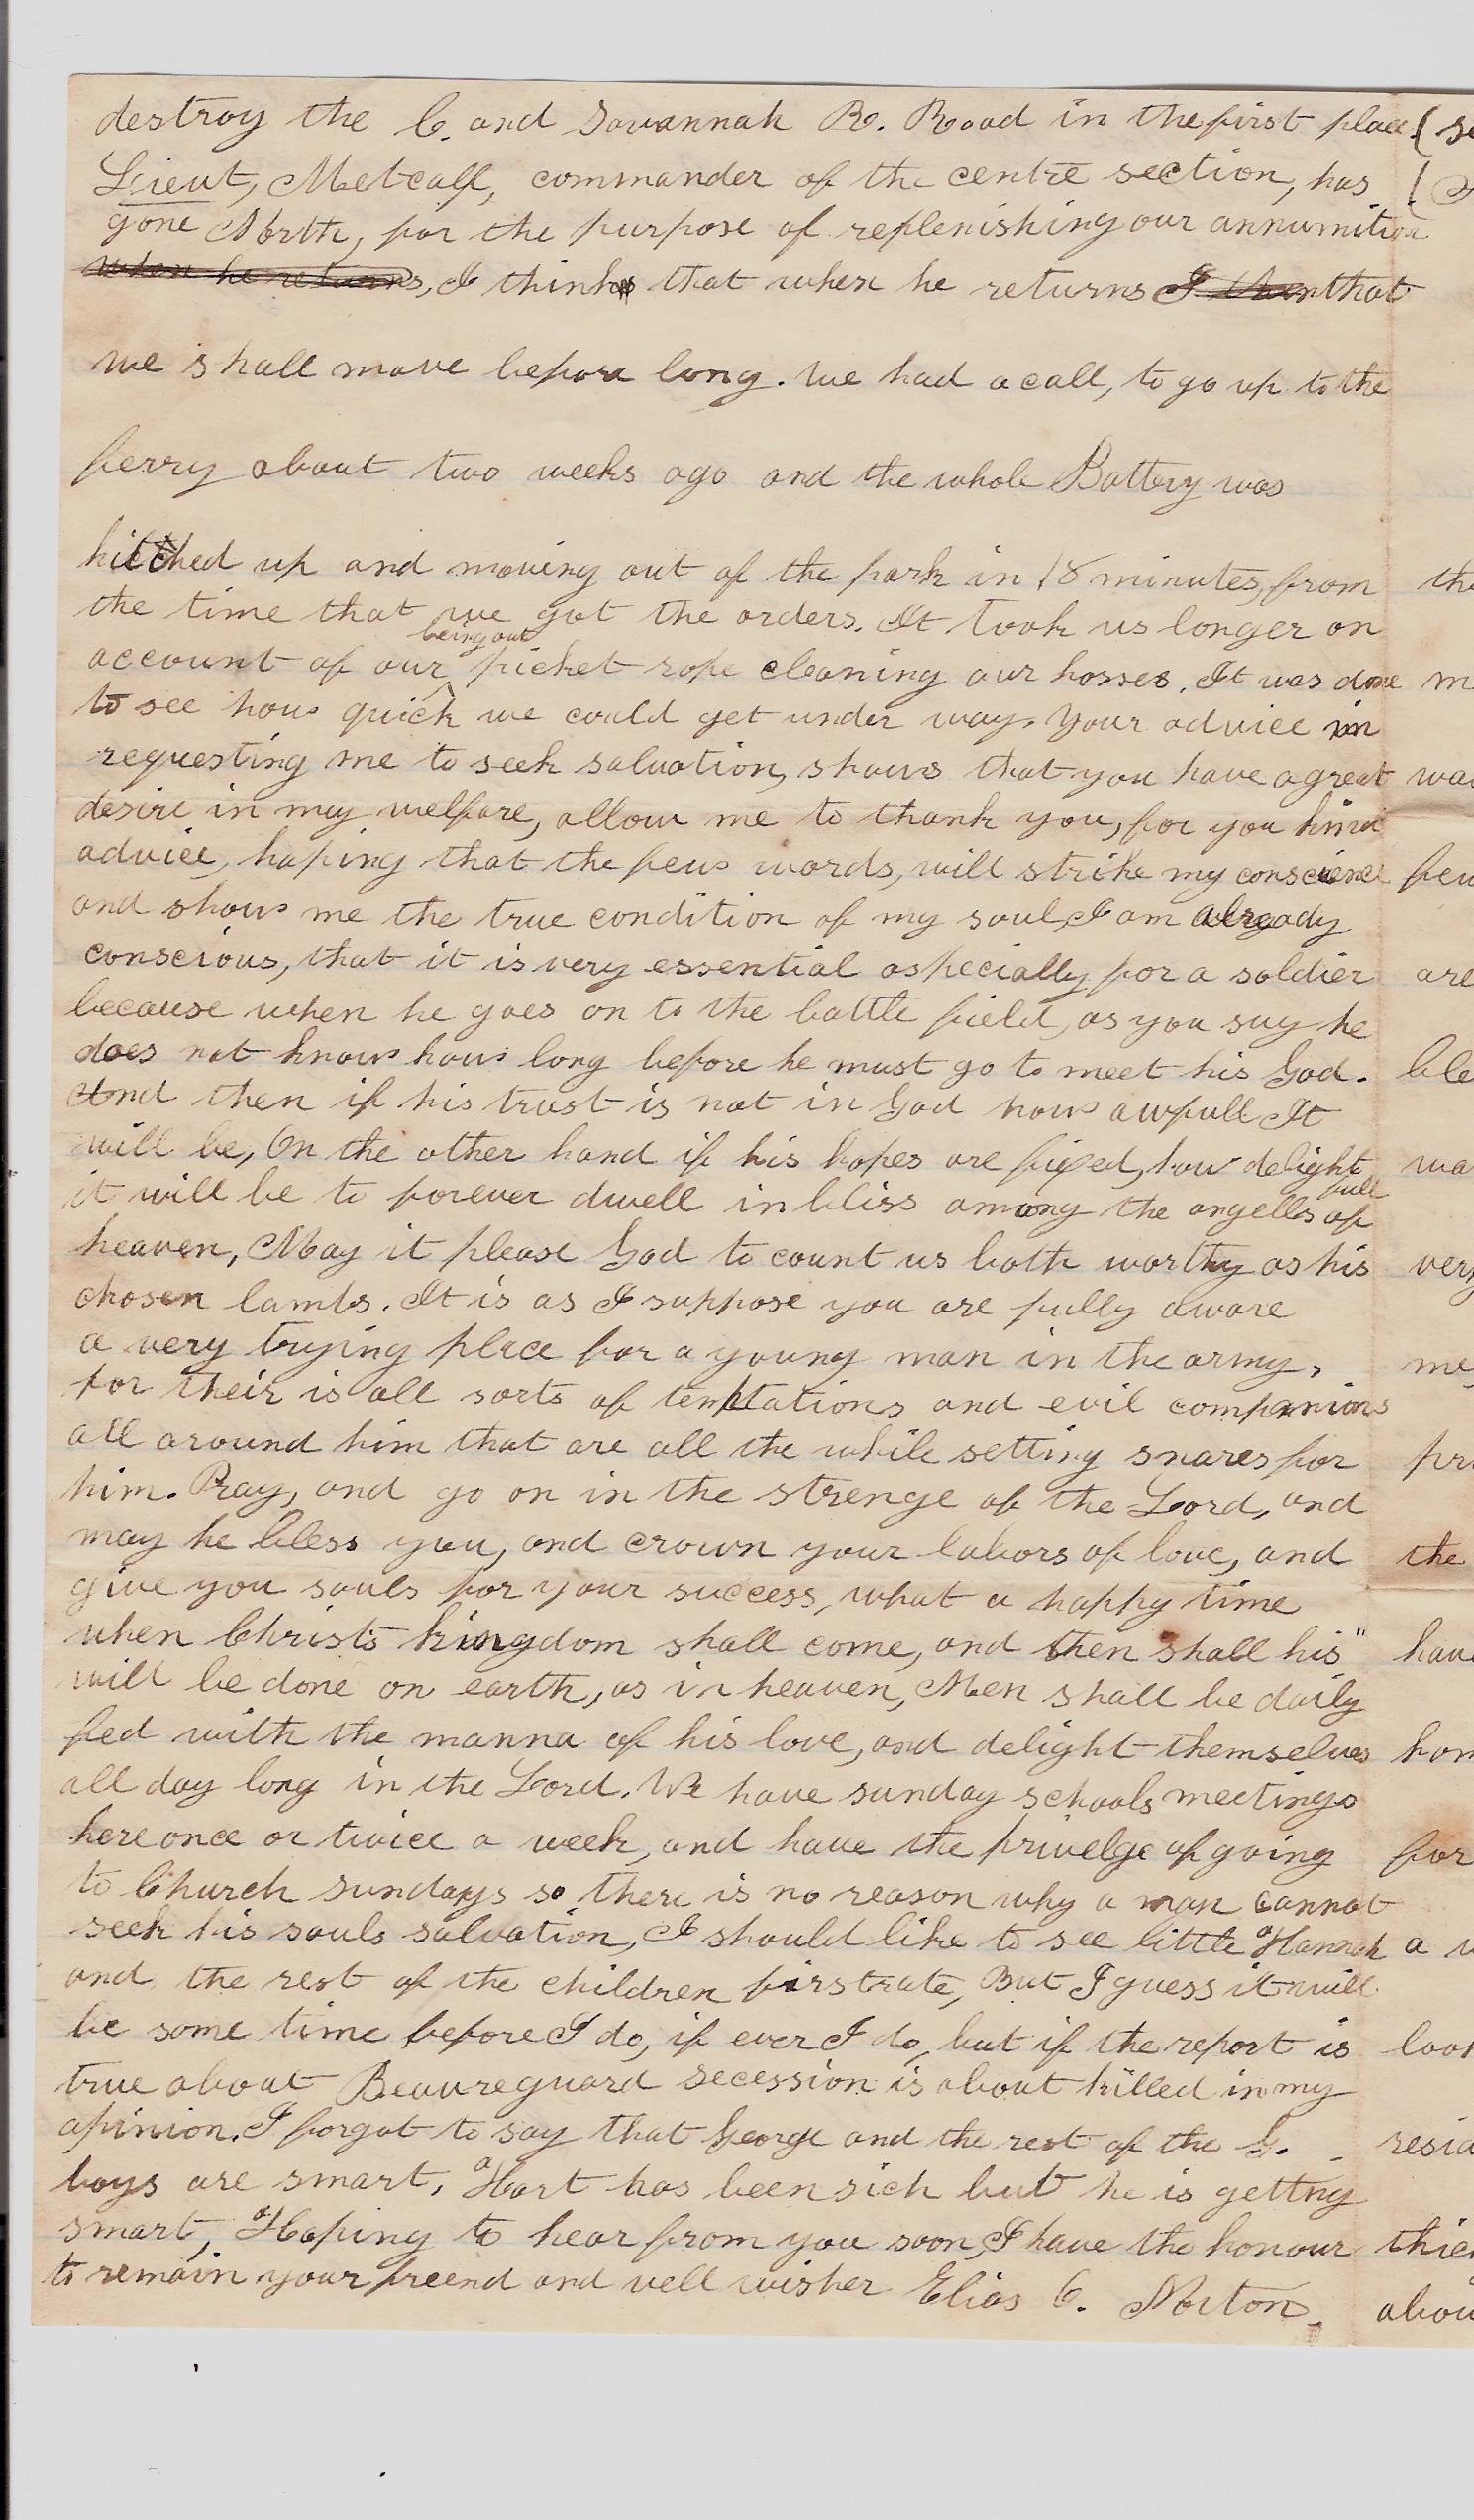 destroy the C. and Savannah R. Road in the first place (
Lieut, Metcalf, commander of the centre section, has (
gone North, for the purpose of replenishing our annumition
when he returns, I think that when he returns I that
we shall move before long. We had a call, to go up to the
ferry about two weeks ago and the whole Battery was
hitched up and moving out of the park in 18 minutes, from the
the time that we got the orders. It took us longer on
being out
account of our ^ picket rope cleaning our horses. It was done m
to see how quick we could get under way. Your advice in
requesting me to seek salvation, shows that you have a great wa
desire in my welfare, allow me to thank you, for you kind
advice, hoping that the few words, will strike my conscience few
and show me the true condition of my soul, I am already
conscious, that it is very essential aspecially for a soldier are
because when he goes on to the battle field, as you say he
does not know how long before he must go to meet his God. ble
And then if his trust is not in God how awfull It
will be, On the other hand if his hopes are fixed, how delight wa
full
it will be to forever dwell in bliss among the angells of
heaven, May it please God to count us both worthy as his very
chosen lambs. It is as I suppose you are fully aware
a very trying place for a young man in the army, me,
for their is all sorts of temptations and evil companions
all around him that are all the while setting snares for pr
him. Pray, and go on in the strenge of the Lord, and
may he bless you, and crown your labors of love, and the
give you souls for your success, what a happy time
when Christs kingdom shall come, and then shall his" have
will be done on earth, as in heaven, Men shall be daily
fed with the manna of his love, and delight themselves hom
all day long in the Lord. We have sunday schools meetings
here once or twice a week, and have the privelge of going for
to Church sundays so there is no reason why a man cannot
seek his souls salvation, I should like to see little Hannah a
and the rest of the children firstrate, But I guess it will
be some time before I do, if ever I do, but if the report is loo
true about Beaureguard secession is about killed in my
opinion. I forgot to say that George and the rest of the G. resi
boys are smart, Hart has been sick but he is gettng
smart, Hoping to hear from you soon, I have the honour thie
to remain your freend and well wisher Elias C. Norton. abou